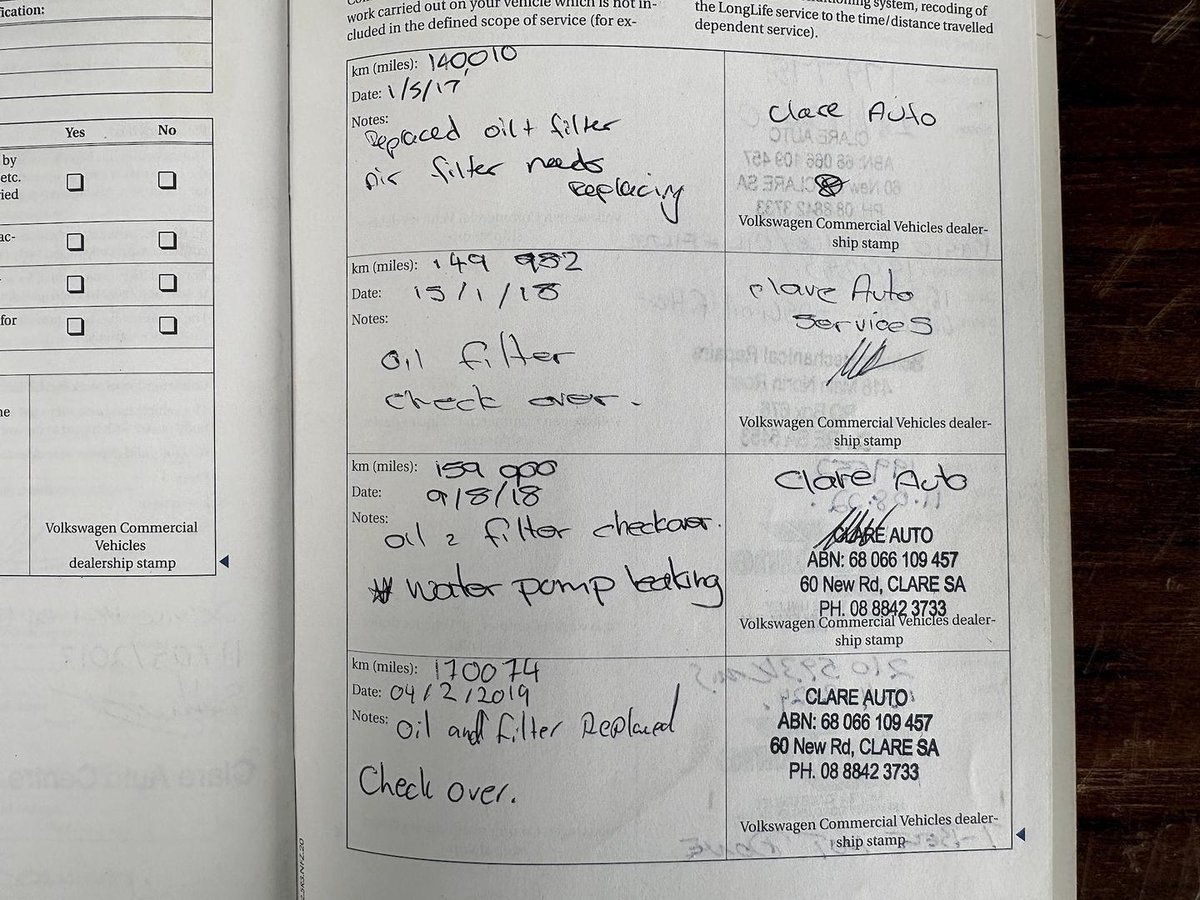 fication:
Yes No
by
etc.
ried
ac-
for
ne
Volkswagen Commercial
Vehicles
dealership stamp
work carried out on your vehicle which is not in-
cluded in the defined scope of service (for ex-
system, recoding of
the LongLife service to the time/distance travelled
dependent service).
km (miles): 140010
Date: 1/5/17
Notes:
Replaced oil + filter
Air filter needs
Replacing
Clare Auto
Volkswagen Commercial Vehicles dealer-
ship stamp
km (miles): 149 982
Date: 15/1/18
Notes:
oil filter
check over.
Clare Auto
Services
Volkswagen Commercial Vehicles dealer-
ship stamp
km (miles): 159 000
Date: 9/8/18
Notes:
oil & filter checkover.
* water pump leaking
Clare Auto
CLARE AUTO
ABN: 68 066 109 457
60 New Rd, CLARE SA
PH. 08 8842 3733
Volkswagen Commercial Vehicles dealer-
ship stamp
km (miles): 170074
Date: 04/2/2019
Notes: Oil and Filter Replaced
Check over.
CLARE AUTO
ABN: 68 066 109 457
60 New Rd, CLARE SA
PH. 08 8842 3733
Volkswagen Commercial Vehicles dealer-
ship stamp